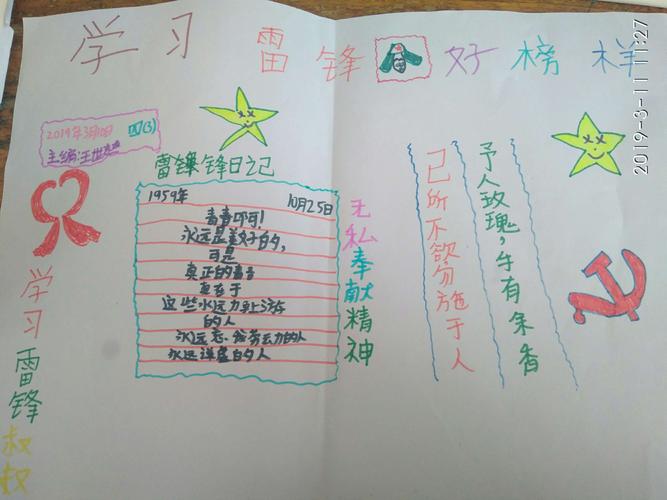 学习雷锋好榜样
2019年3月10日 四(3)
主编:王世
雷锋日记
1959年 10月25日
青春啊!
永远是美好的,
可是
真正的青春
只在于
这些永远力争上游
的人
永远忘我劳动的人
永远谦虚的人
学习雷锋叔叔
无私奉献精神
己所不欲勿施于人
予人玫瑰,手有余香
2019-3-11 11:27